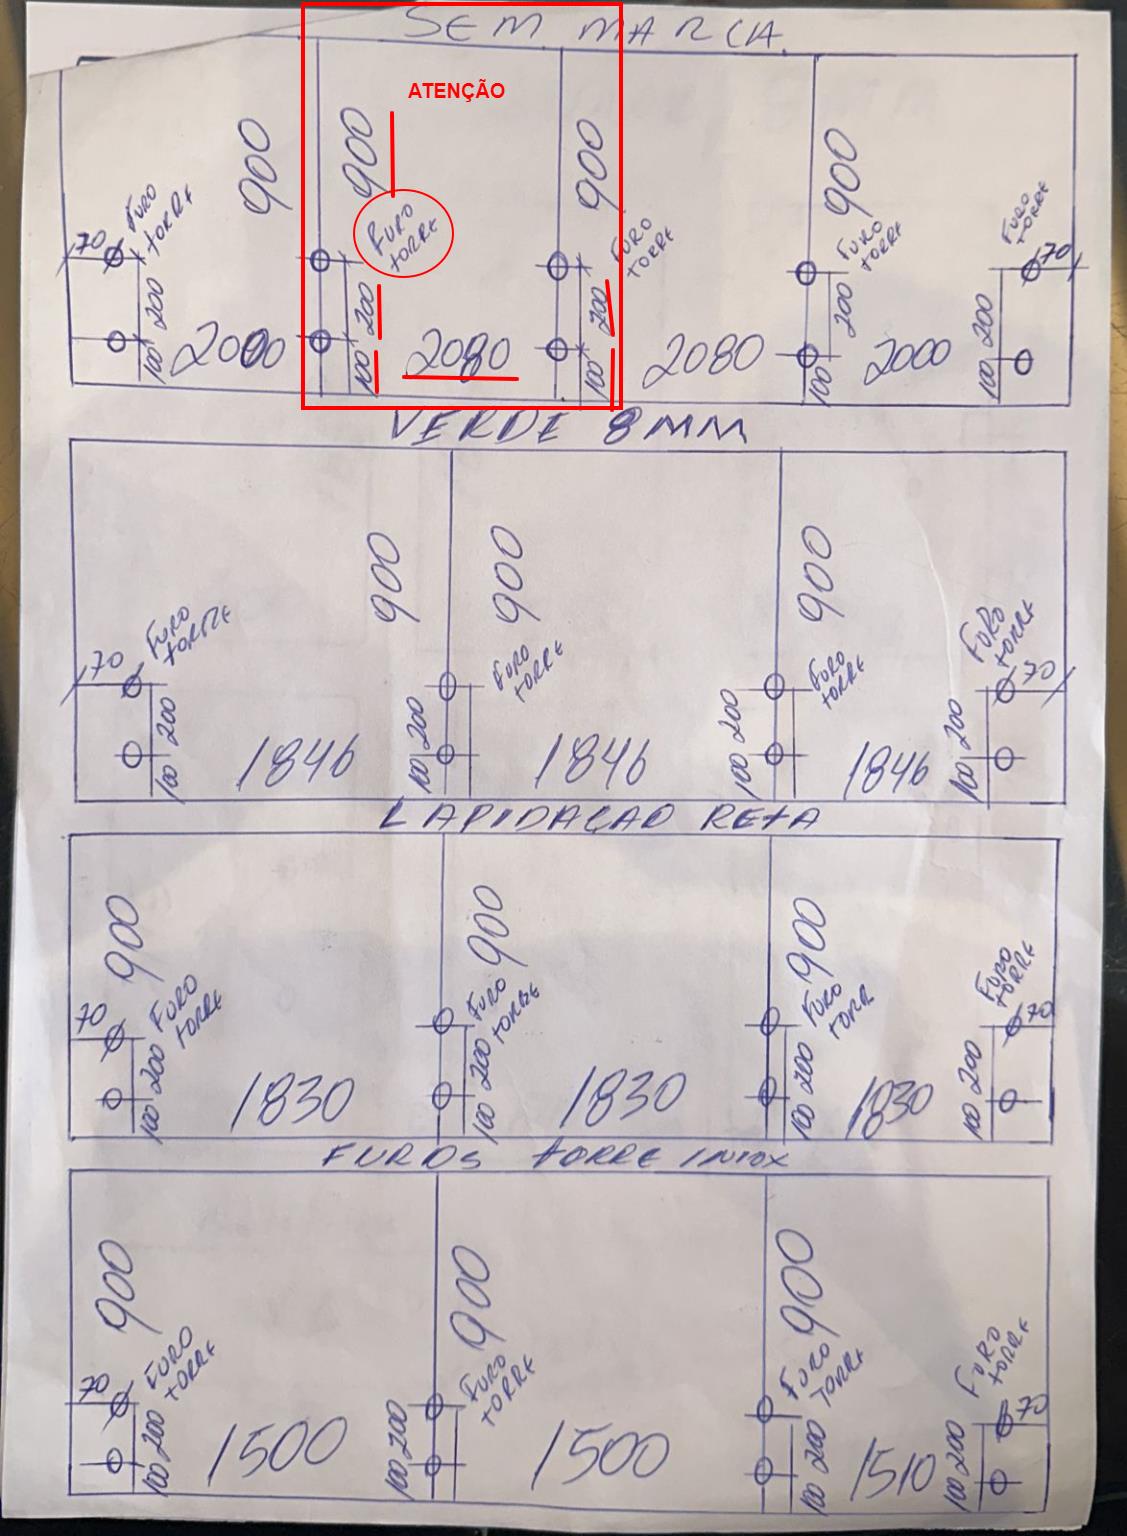 SEM MARCA.
ATENÇÃO
900
900
900
900
FURO
TORRE
FURO
TORRE
FURO
TORRE
FURO
TORRE
FURO
TORRE
70
70
200
200
200
200
200
100
100
100
100
100
2000
2080
2080
2000
VERDE 8MM
900
900
900
FURO
TORRE
FURO
TORRE
FURO
TORRE
FURO
TORRE
70
70
100 200
100 200
100 200
100 200
1846
1846
1846
LAPIDAÇAO RETA
900
900
900
FURO
TORRE
FURO
TORRE
FURO
TORR
FURO
TORRE
70
70
100 200
100 200
100 200
100 200
1830
1830
1830
FUROS TORRE INIOX
900
900
900
FURO
TORRE
FURO
TORRE
FURO
TORRE
FURO
TORRE
70
70
100 200
100 200
100 200
100 200
1500
1500
1510